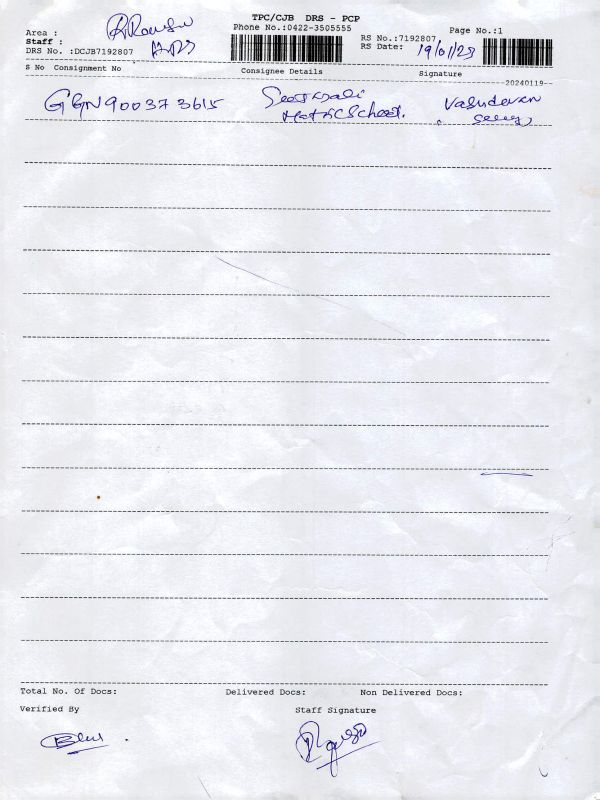 TPC/CJB DRS - PCP
Area :
Phone No.:0422-3505555
Page No.:1
Staff :
RS No.:7192807
DRS No. :DCJB7192807
RS Date: 19/01/23
S No Consignment No Consignee Details Signature
20240119
GGN900373 3615 Vasudevan
Matric School.
Total No. Of Docs: Delivered Docs: Non Delivered Docs:
Verified By Staff Signature